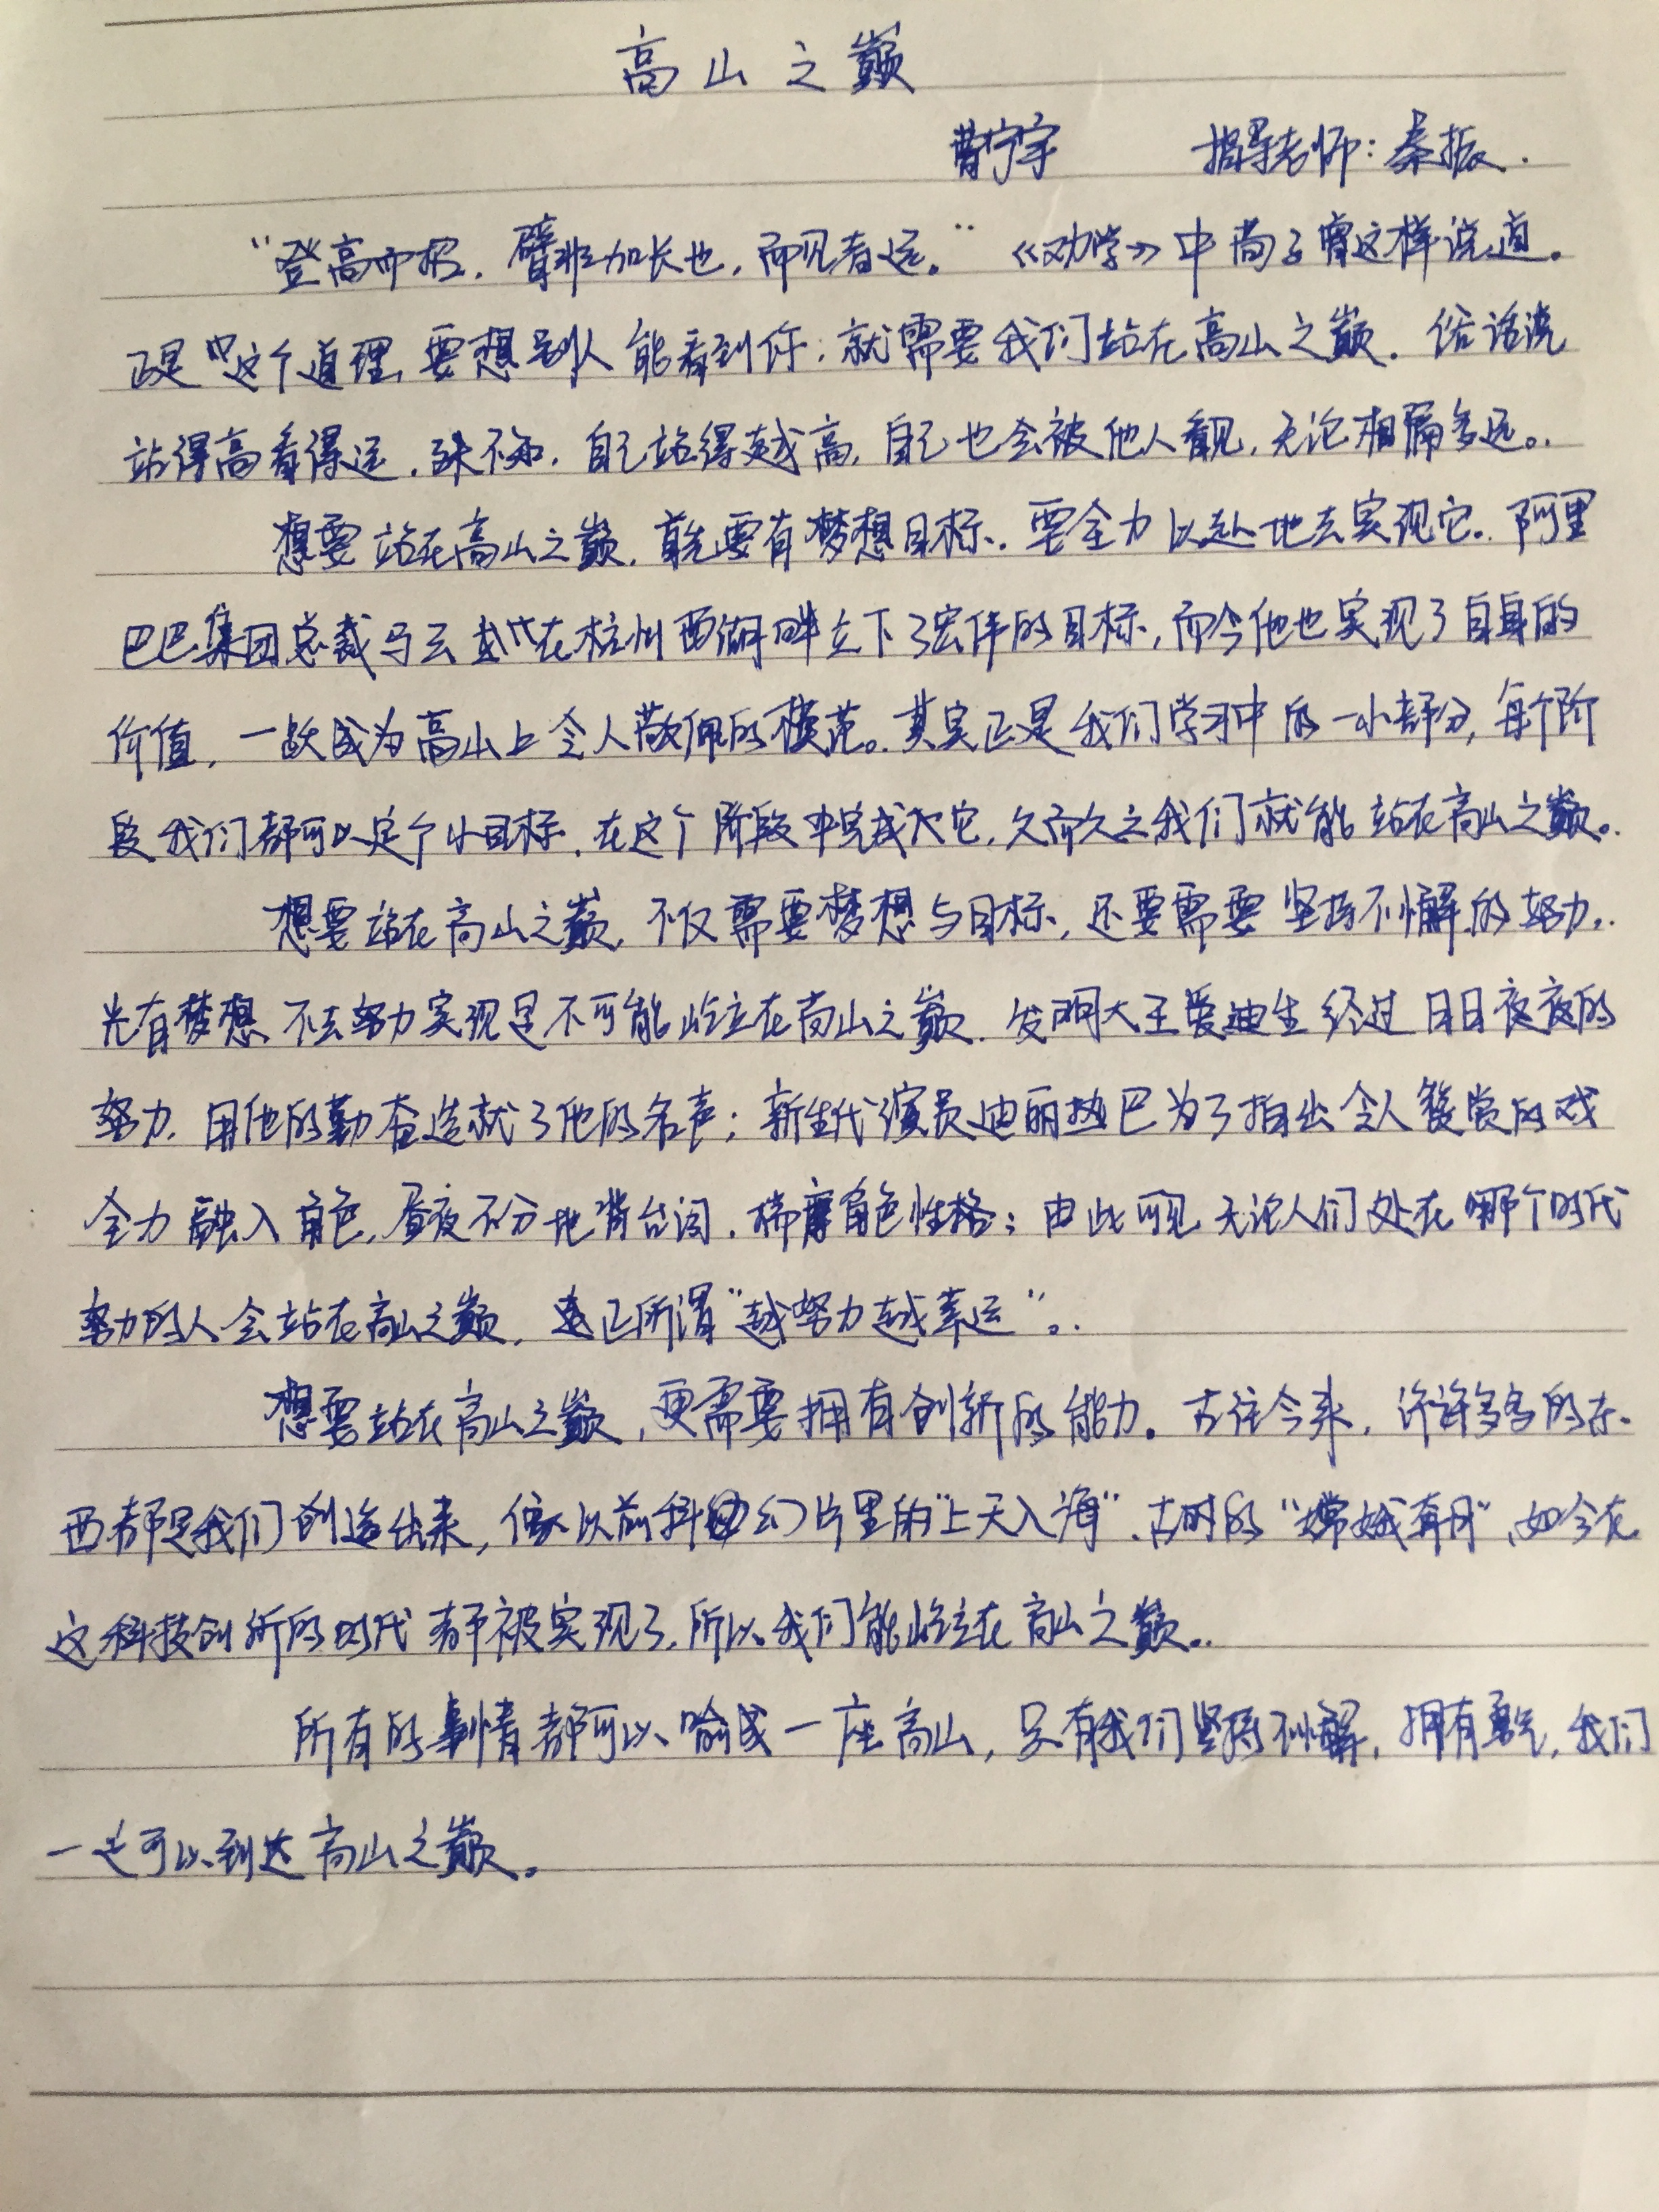 高山之巅
曹宁宇 指导老师:秦振.
“登高而招,臂非加长也,而见者远。”《劝学》中荀子曾这样说道。
正是这个道理,要想别人能看到你,就需要我们站在高山之巅.俗话说
站得高看得远,殊不知,自己站得越高,自己也会被他人看见,无论相隔多远。
想要站在高山之巅,首先要有梦想目标.要全力以赴地去实现它。阿里
巴巴集团总裁马云就在杭州西湖畔立下了宏伟的目标,而今他也实现了自身的
价值,一跃成为高山上令人敬佩的模范。其实正是我们学习中的一小部分,每个阶
段我们都可以定个小目标,在这个阶段中完成它,久而久之我们就能站在高山之巅。
想要站在高山之巅,不仅需要梦想与目标,还要需要坚持不懈的努力。
光有梦想不去努力实现是不可能屹立在高山之巅.发明大王爱迪生经过日日夜夜的
努力,用他的勤奋造就了他的名声;新生代演员迪丽热巴为了拍出令人赞赏的戏
全力融入角色,昼夜不分地背台词,揣摩角色性格;由此可见无论人们处在哪个时代
努力的人会站在高山之巅,这正所谓“越努力越幸运”。
想要站在高山之巅,更需要拥有创新的能力。古往今来,许许多多的东
西都是我们创造出来,像以前科幻片里的“上天入海”、古时的“嫦娥奔月”,如今在
这科技创新的时代都被实现了,所以我们能屹立在高山之巅。
所有的事情都可以喻成一座高山,只有我们坚持不懈,拥有勇气,我们
一定可以到达高山之巅。